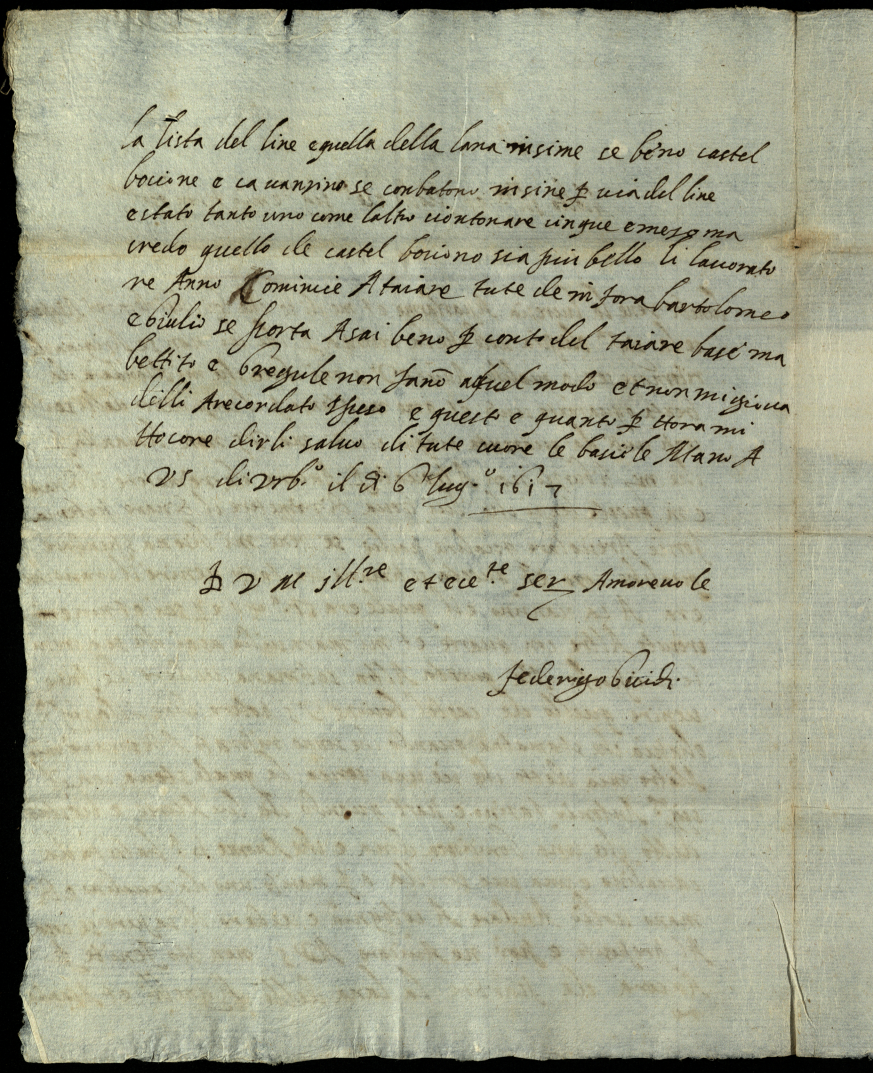 la lista del line e quella della lana insime se bene castel
bocione e cavansino se conbatono insine ꝑ via del line
e stato tanto uno come laltro ciontonare cinque e meso ma
credo quello de castel bociono sia piu bello li lavorato
re Anno Comincie A taiare tute de in fora bartolomeo
e Giulio se porta Asai beno ꝑ conto del taiare base ma
bettito e Gregule non fano a quel modo et non mi giova
delli Arecordato speso e questo e quanto ꝑ ttora mi
ttocore dirli salvo di tute cuore le bacie le Mano A
VS di Urb.º il di 6 lug.º 1617
ꝑ V M Ill.re et ece.te ser Amorevole
federigo Guidi.